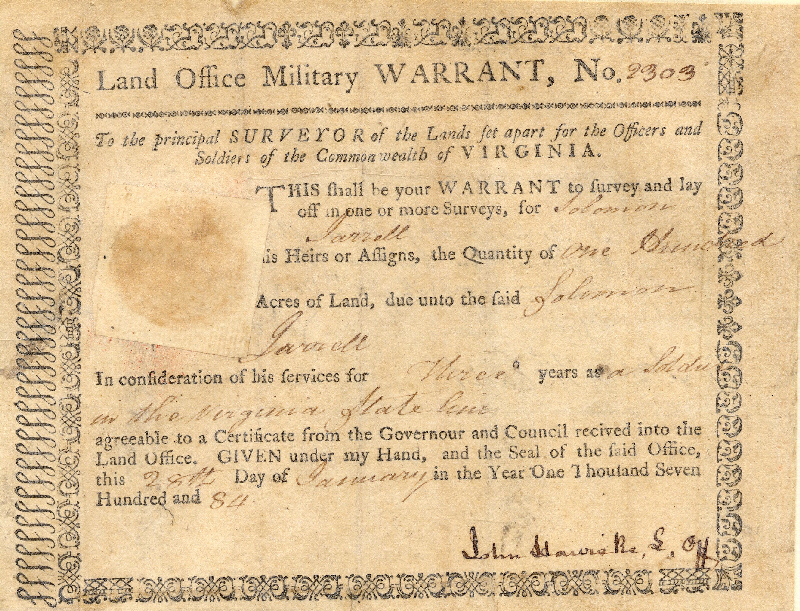 Land Office Military WARRANT, No. 2303
To the principal SURVEYOR of the Lands set apart for the Officers and
Soldiers of the Commonwealth of VIRGINIA.
THIS shall be your WARRANT to survey and lay
off in one or more Surveys, for Solomon
Jarrell
is Heirs or Assigns, the Quantity of one Hundred
Acres of Land, due unto the said Solomon
Jarrell
In consideration of his services for Three years as a Soldie
in the Virginia State line
agreeable to a Certificate from the Governour and Council recived into the
Land Office. GIVEN under my Hand, and the Seal of the said Office,
this 28th Day of January in the Year One Thousand Seven
Hundred and 84
John L. Off